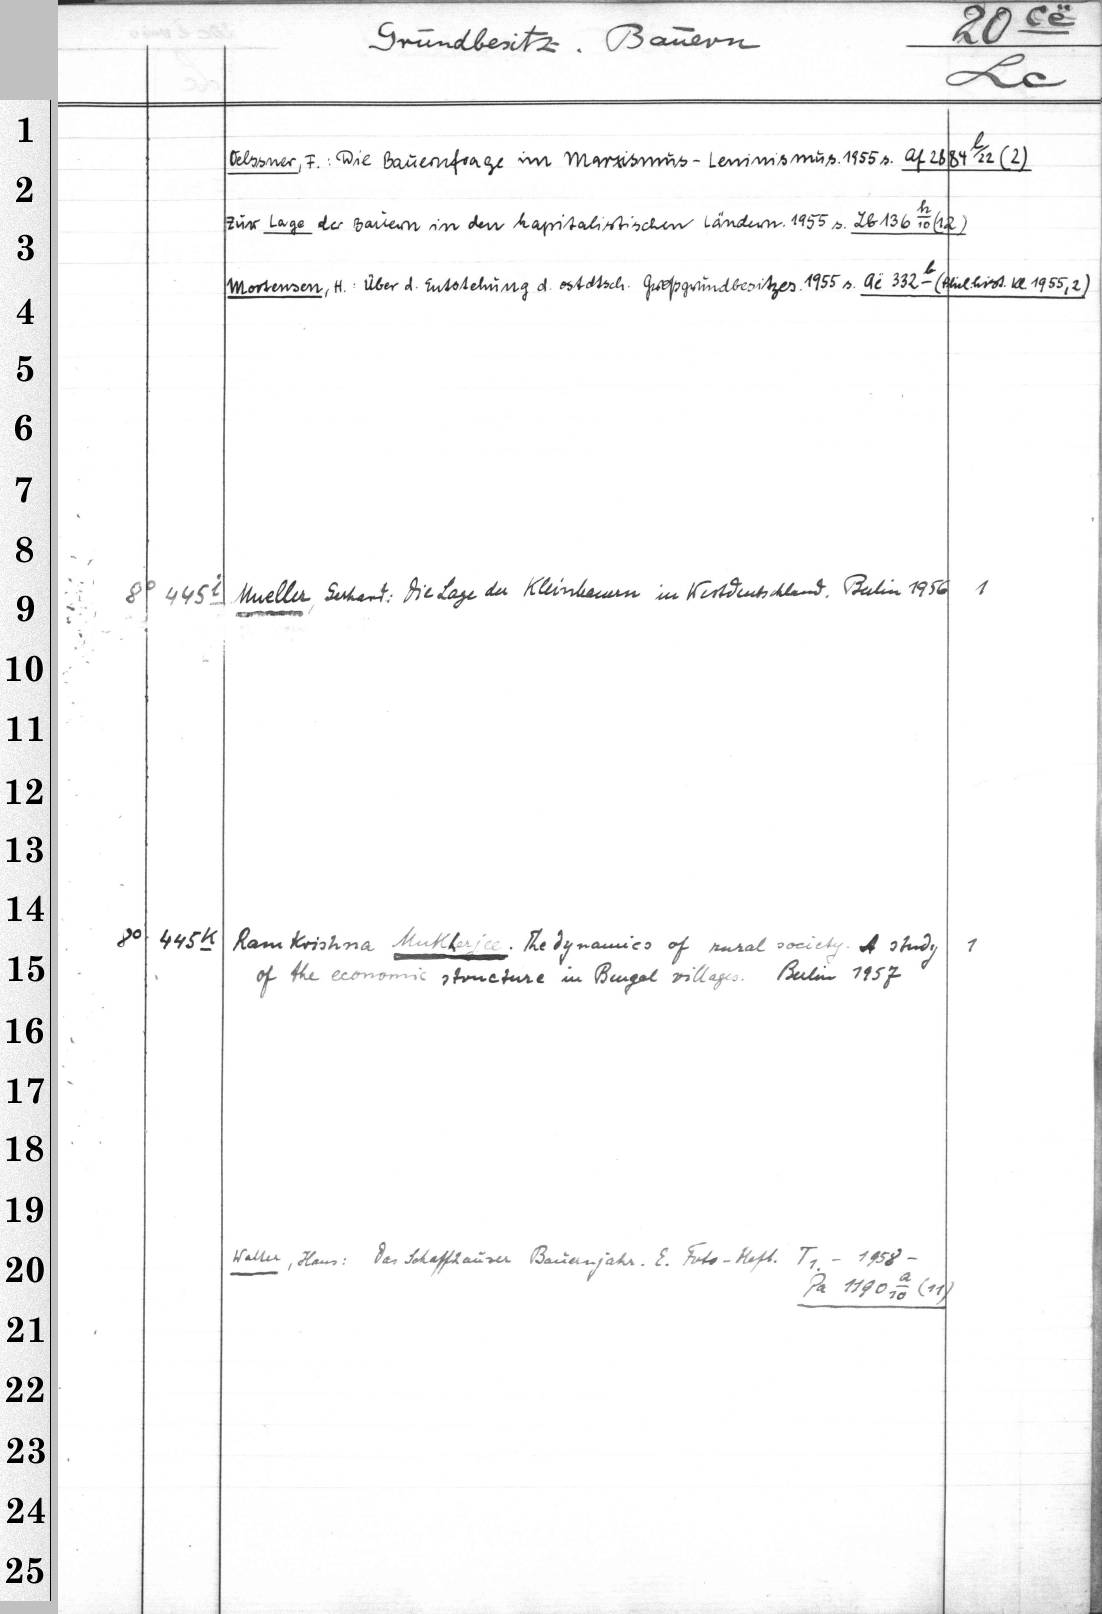 Grundbesitz. Bauern
20 cë
Lc
1
Oelssner, F.: Die Bauernfrage im Marxismus-Leninismus. 1955 s. Af 2884 l/22 (2)
2
Zur Lage der Bauern in den kapitalistischen Ländern. 1955 s. Lb 136 h/10 (12)
3
Mortensen, H.: Über d. Entstehung d. ostdtsch. Großgrundbesitzes. 1955 s. Aë 332 (Phil. hist. Kl 1955,2)
4
5
6
7
8
8° 445 i Mueller, Gerhard: Die Lage der Kleinbauern in Westdeutschland. Berlin 1956 1
9
10
11
12
13
14
8° 445 k Ram Krishna Mukherjee. The dynamics of rural society. A study 1
15
of the economic structure in Bengal villages. Berlin 1957
16
17
18
19
20
Walter, Hans: Das Schaffhauser Bauernjahr. E. Foto-Heft. T 1. - 1958 -
Pa 1190 a/10 (11)
21
22
23
24
25